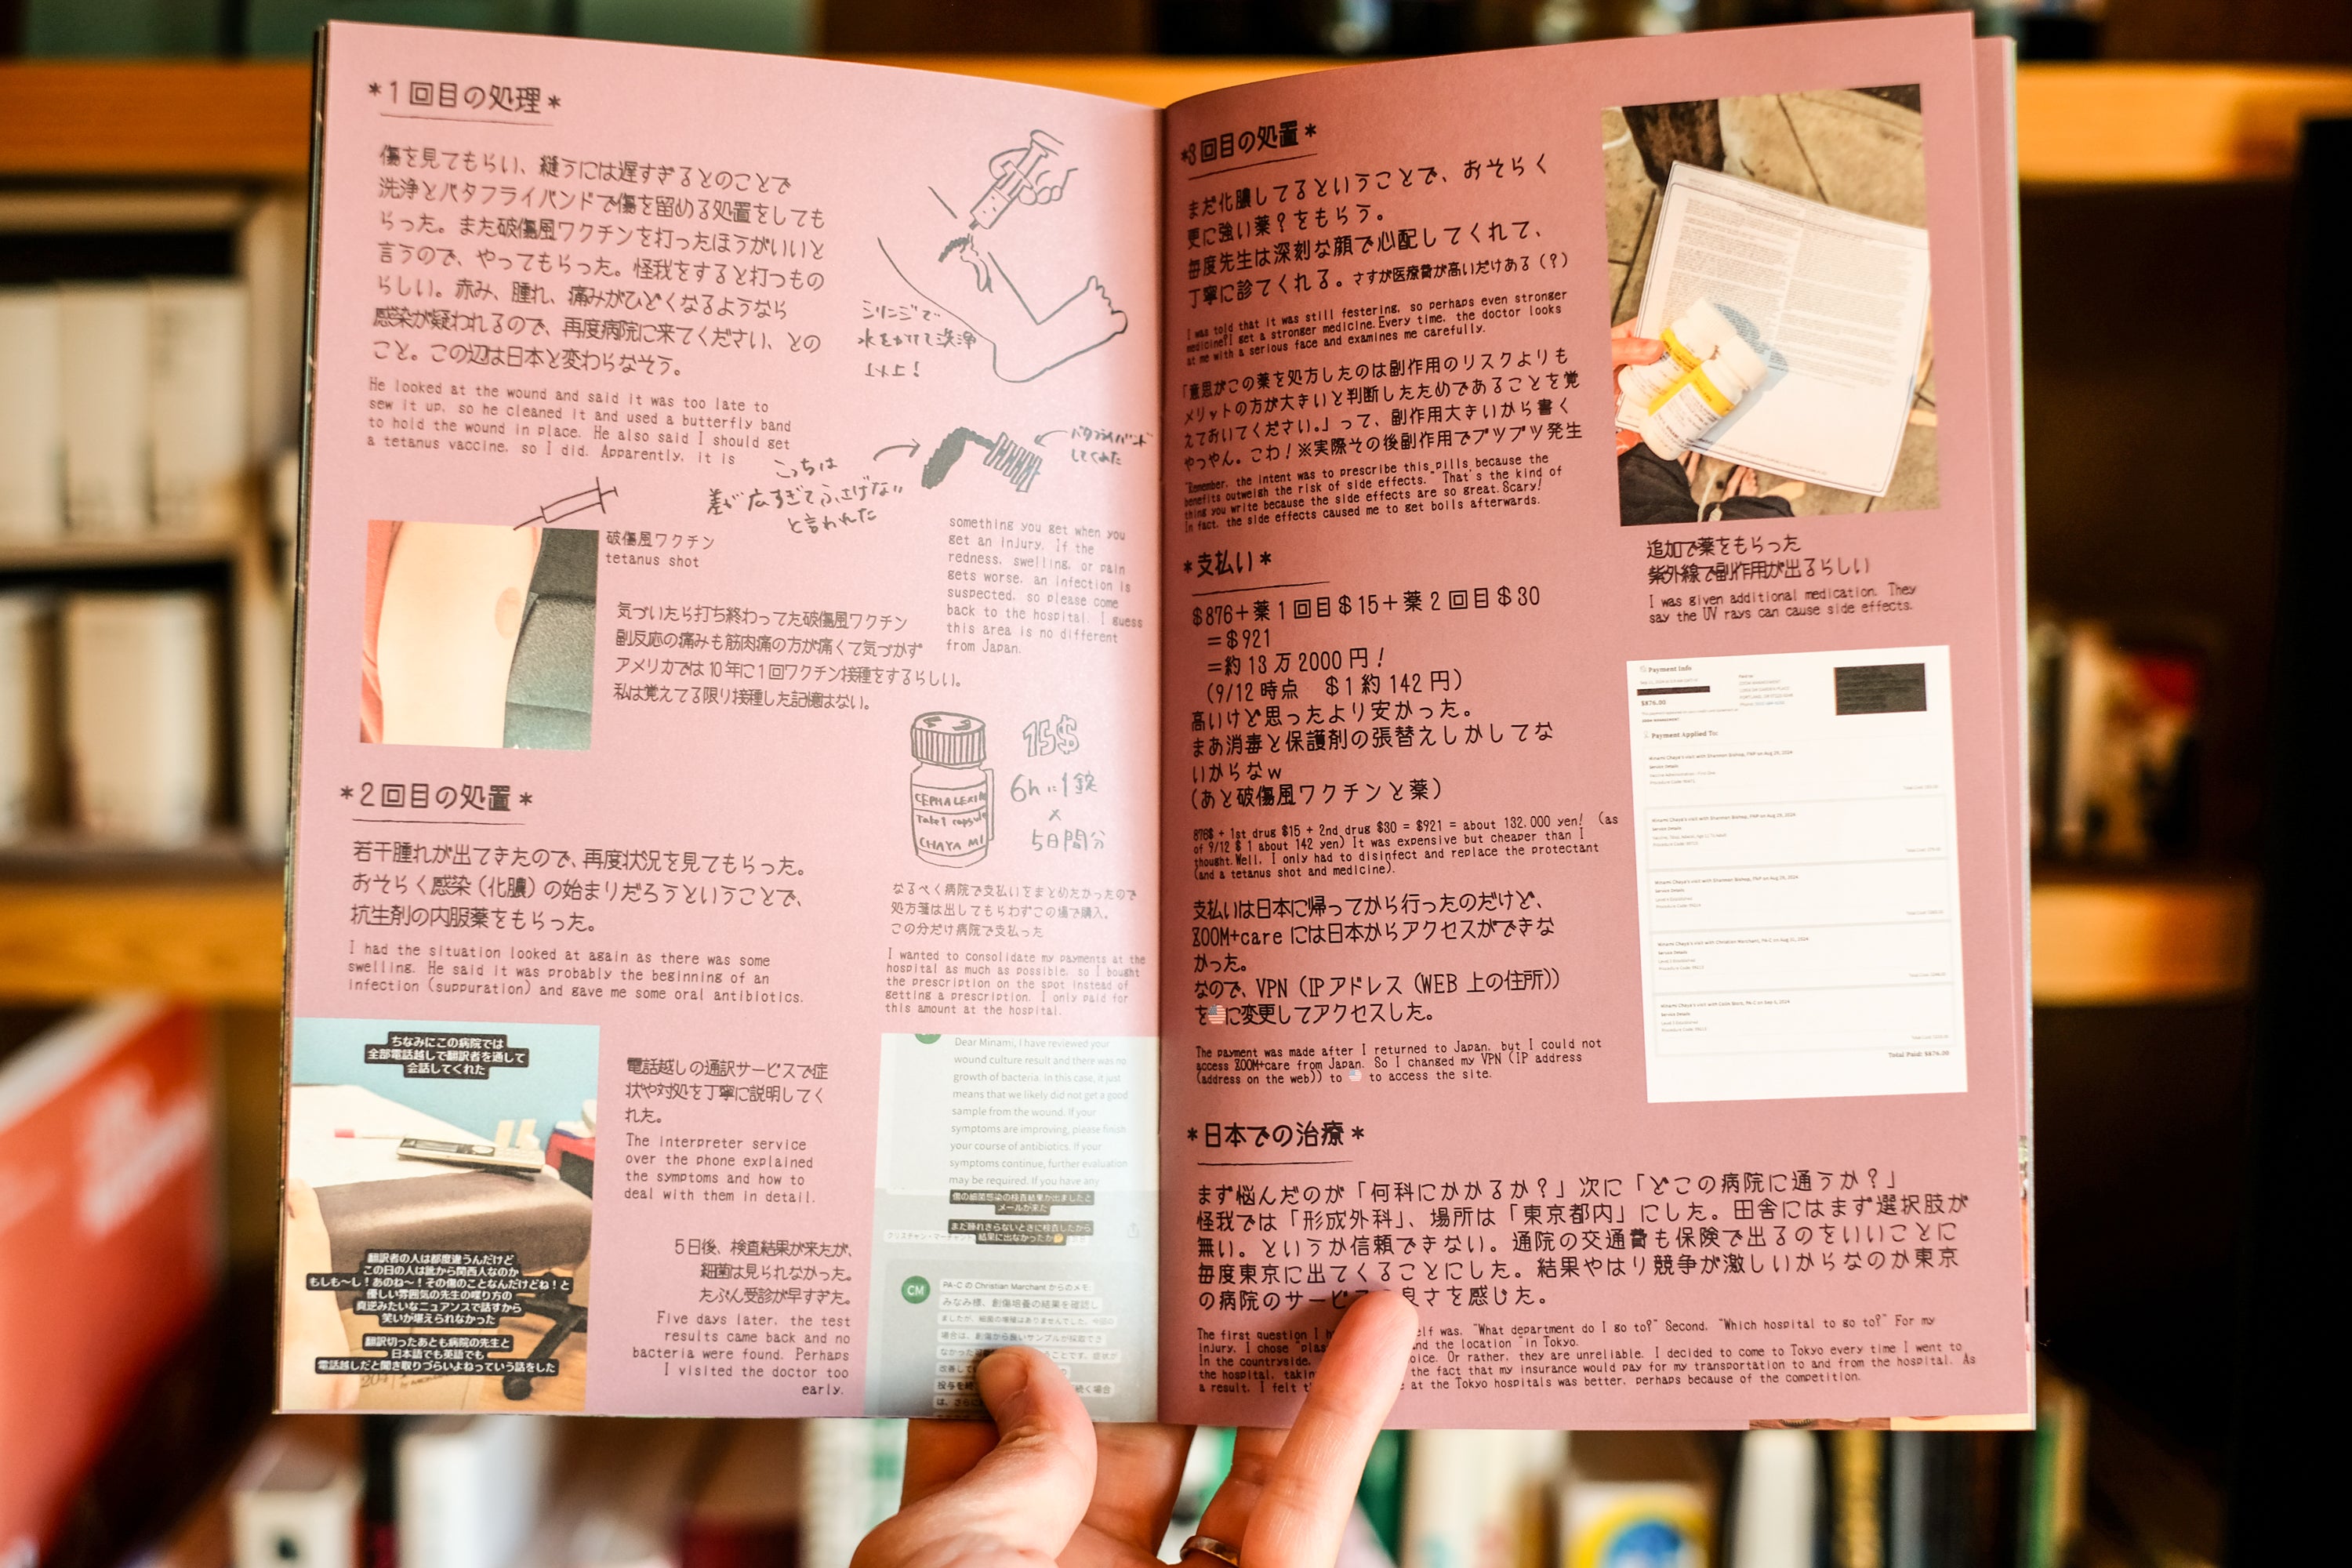 *1回目の処理*
傷を見てもらい、縫うには遅すぎるとのことで
洗浄とバタフライバンドで傷を留める処置をしても
らった。また破傷風ワクチンを打ったほうがいいと
言うので、やってもらった。怪我をすると打つもの
らしい。赤み、腫れ、痛みがひどくなるようなら
感染が疑われるので、再度病院に来てください、との
こと。この辺は日本と変わらなそう。
He looked at the wound and said it was too late to
sew it up, so he cleaned it and used a butterfly band
to hold the wound in place. He also said I should get
a tetanus vaccine, so I did. Apparently, it is
シリンジで
水をかけて洗浄
以上!
バタフライバンド
してくれた
こっちは
差が広すぎてふさげない
と言われた
something you get when you
get an injury. If the
redness, swelling, or pain
gets worse, an infection is
suspected, so please come
back to the hospital. I guess
this area is no different
from Japan.
破傷風ワクチン
tetanus shot
気づいたら打ち終わってた破傷風ワクチン
副反応の痛みも筋肉痛の方が痛くて気づかず
アメリカでは10年に1回ワクチン接種をするらしい。
私は覚えてる限り接種した記憶はない。
*2回目の処置*
若干腫れが出てきたので、再度状況を見てもらった。
おそらく感染(化膿)の始まりだろうということで、
抗生剤の内服薬をもらった。
I had the situation looked at again as there was some
swelling. He said it was probably the beginning of an
infection (suppuration) and gave me some oral antibiotics.
CEPHALEXIN
Take 1 capsule
CHAYA MI
15$
6hに1錠
×
5日間分
なるべく病院で支払いをまとめたかったので
処方箋は出してもらわずこの場で購入。
この分だけ病院で支払った
I wanted to consolidate my payments at the
hospital as much as possible, so I bought
the prescription on the spot instead of
getting a prescription. I only paid for
this amount at the hospital.
ちなみにこの病院では
全部電話越しで翻訳者を通して
会話してくれた
翻訳者の人は都度違うんだけど
この日の人は訛から関西人なのか
もしも〜し!あのね〜!その傷のことなんだけどね!と
優しい雰囲気の先生の喋り方の
真逆みたいなニュアンスで話すから
笑いが堪えられなかった
翻訳切ったあとも病院の先生と
日本語でも英語でも
電話越しだと聞き取りづらいよねっていう話をした
電話越しの通訳サービスで症
状や対処を丁寧に説明してく
れた。
The interpreter service
over the phone explained
the symptoms and how to
deal with them in detail.
5日後、検査結果が来たが、
細菌は見られなかった。
たぶん受診が早すぎた。
Five days later, the test
results came back and no
bacteria were found. Perhaps
I visited the doctor too
early.
Dear Minami, I have reviewed your
wound culture result and there was no
growth of bacteria. In this case, it just
means that we likely did not get a good
sample from the wound. If your
symptoms are improving, please finish
your course of antibiotics. If your
symptoms continue, further evaluation
may be required. If you have any
傷の細菌感染の検査結果が出ましたと
メールが来た
まだ腫れきらないときに検査したから
結果に出なかったか
CM
PA-C の Christian Marchant からのメモ
みなみ様、創傷培養の結果を確認し
ましたが、細菌の増殖はありませんでした。今回の
場合は、創傷から良いサンプルが採取でき
*3回目の処置*
まだ化膿してるということで、おそらく
更に強い薬?をもらう。
毎度先生は深刻な顔で心配してくれて、
丁寧に診てくれる。さすが医療費が高いだけある(?)
I was told that it was still festering, so perhaps even stronger
medicine?I get a stronger medicine.Every time, the doctor looks
at me with a serious face and examines me carefully.
「意思がこの薬を処方したのは副作用のリスクよりも
メリットの方が大きいと判断したためであることを覚
えておいてください。」って、副作用大きいから書く
やつやん。こわ!※実際その後副作用でブツブツ発生
"Remember, the intent was to prescribe this pills because the
benefits outweigh the risk of side effects." That's the kind of
thing you write because the side effects are so great.Scary!
In fact, the side effects caused me to get boils afterwards.
*支払い*
$876+薬1回目$15+薬2回目$30
=$921
=約13万2000円!
(9/12時点 $1約142円)
高いけど思ったより安かった。
まあ消毒と保護剤の張替えしかしてな
いからなw
(あと破傷風ワクチンと薬)
876$ + 1st drug $15 + 2nd drug $30 = $921 = about 132,000 yen! (as
of 9/12 $ 1 about 142 yen) It was expensive but cheaper than I
thought.Well, I only had to disinfect and replace the protectant
(and a tetanus shot and medicine).
支払いは日本に帰ってから行ったのだけど、
ZOOM+care には日本からアクセスができな
かった。
なので、VPN(IPアドレス(WEB上の住所))
を🇺🇸に変更してアクセスした。
The payment was made after I returned to Japan, but I could not
access ZOOM+care from Japan. So I changed my VPN (IP address
(address on the web)) to 🇺🇸 to access the site.
追加で薬をもらった
紫外線で副作用が出るらしい
I was given additional medication. They
say the UV rays can cause side effects.
Payment Info
$876.00
Payment Applied To:
Minami Chaya's visit with Shannon Bishop, FNP on Aug 29, 2024
Minami Chaya's visit with Shannon Bishop, FNP on Aug 29, 2024
Minami Chaya's visit with Shannon Bishop, FNP on Aug 29, 2024
Minami Chaya's visit with Christian Marchant, PA-C on Aug 31, 2024
Total Paid: $876.00
*日本での治療*
まず悩んだのが「何科にかかるか?」次に「どこの病院に通うか?」
怪我では「形成外科」、場所は「東京都内」にした。田舎にはまず選択肢が
無い。というか信頼できない。通院の交通費も保険で出るのをいいことに
毎度東京に出てくることにした。結果やはり競争が激しいからなのか東京
の病院のサービス 良さを感じた。
The first question I elf was, "What department do I go to?" Second, "Which hospital to go to?" For my
injury, I chose and the location "in Tokyo.
In the countryside, oice. Or rather, they are unreliable. I decided to come to Tokyo every time I went to
the hospital, the fact that my insurance would pay for my transportation to and from the hospital. As
a result, I felt at the Tokyo hospitals was better, perhaps because of the competition.